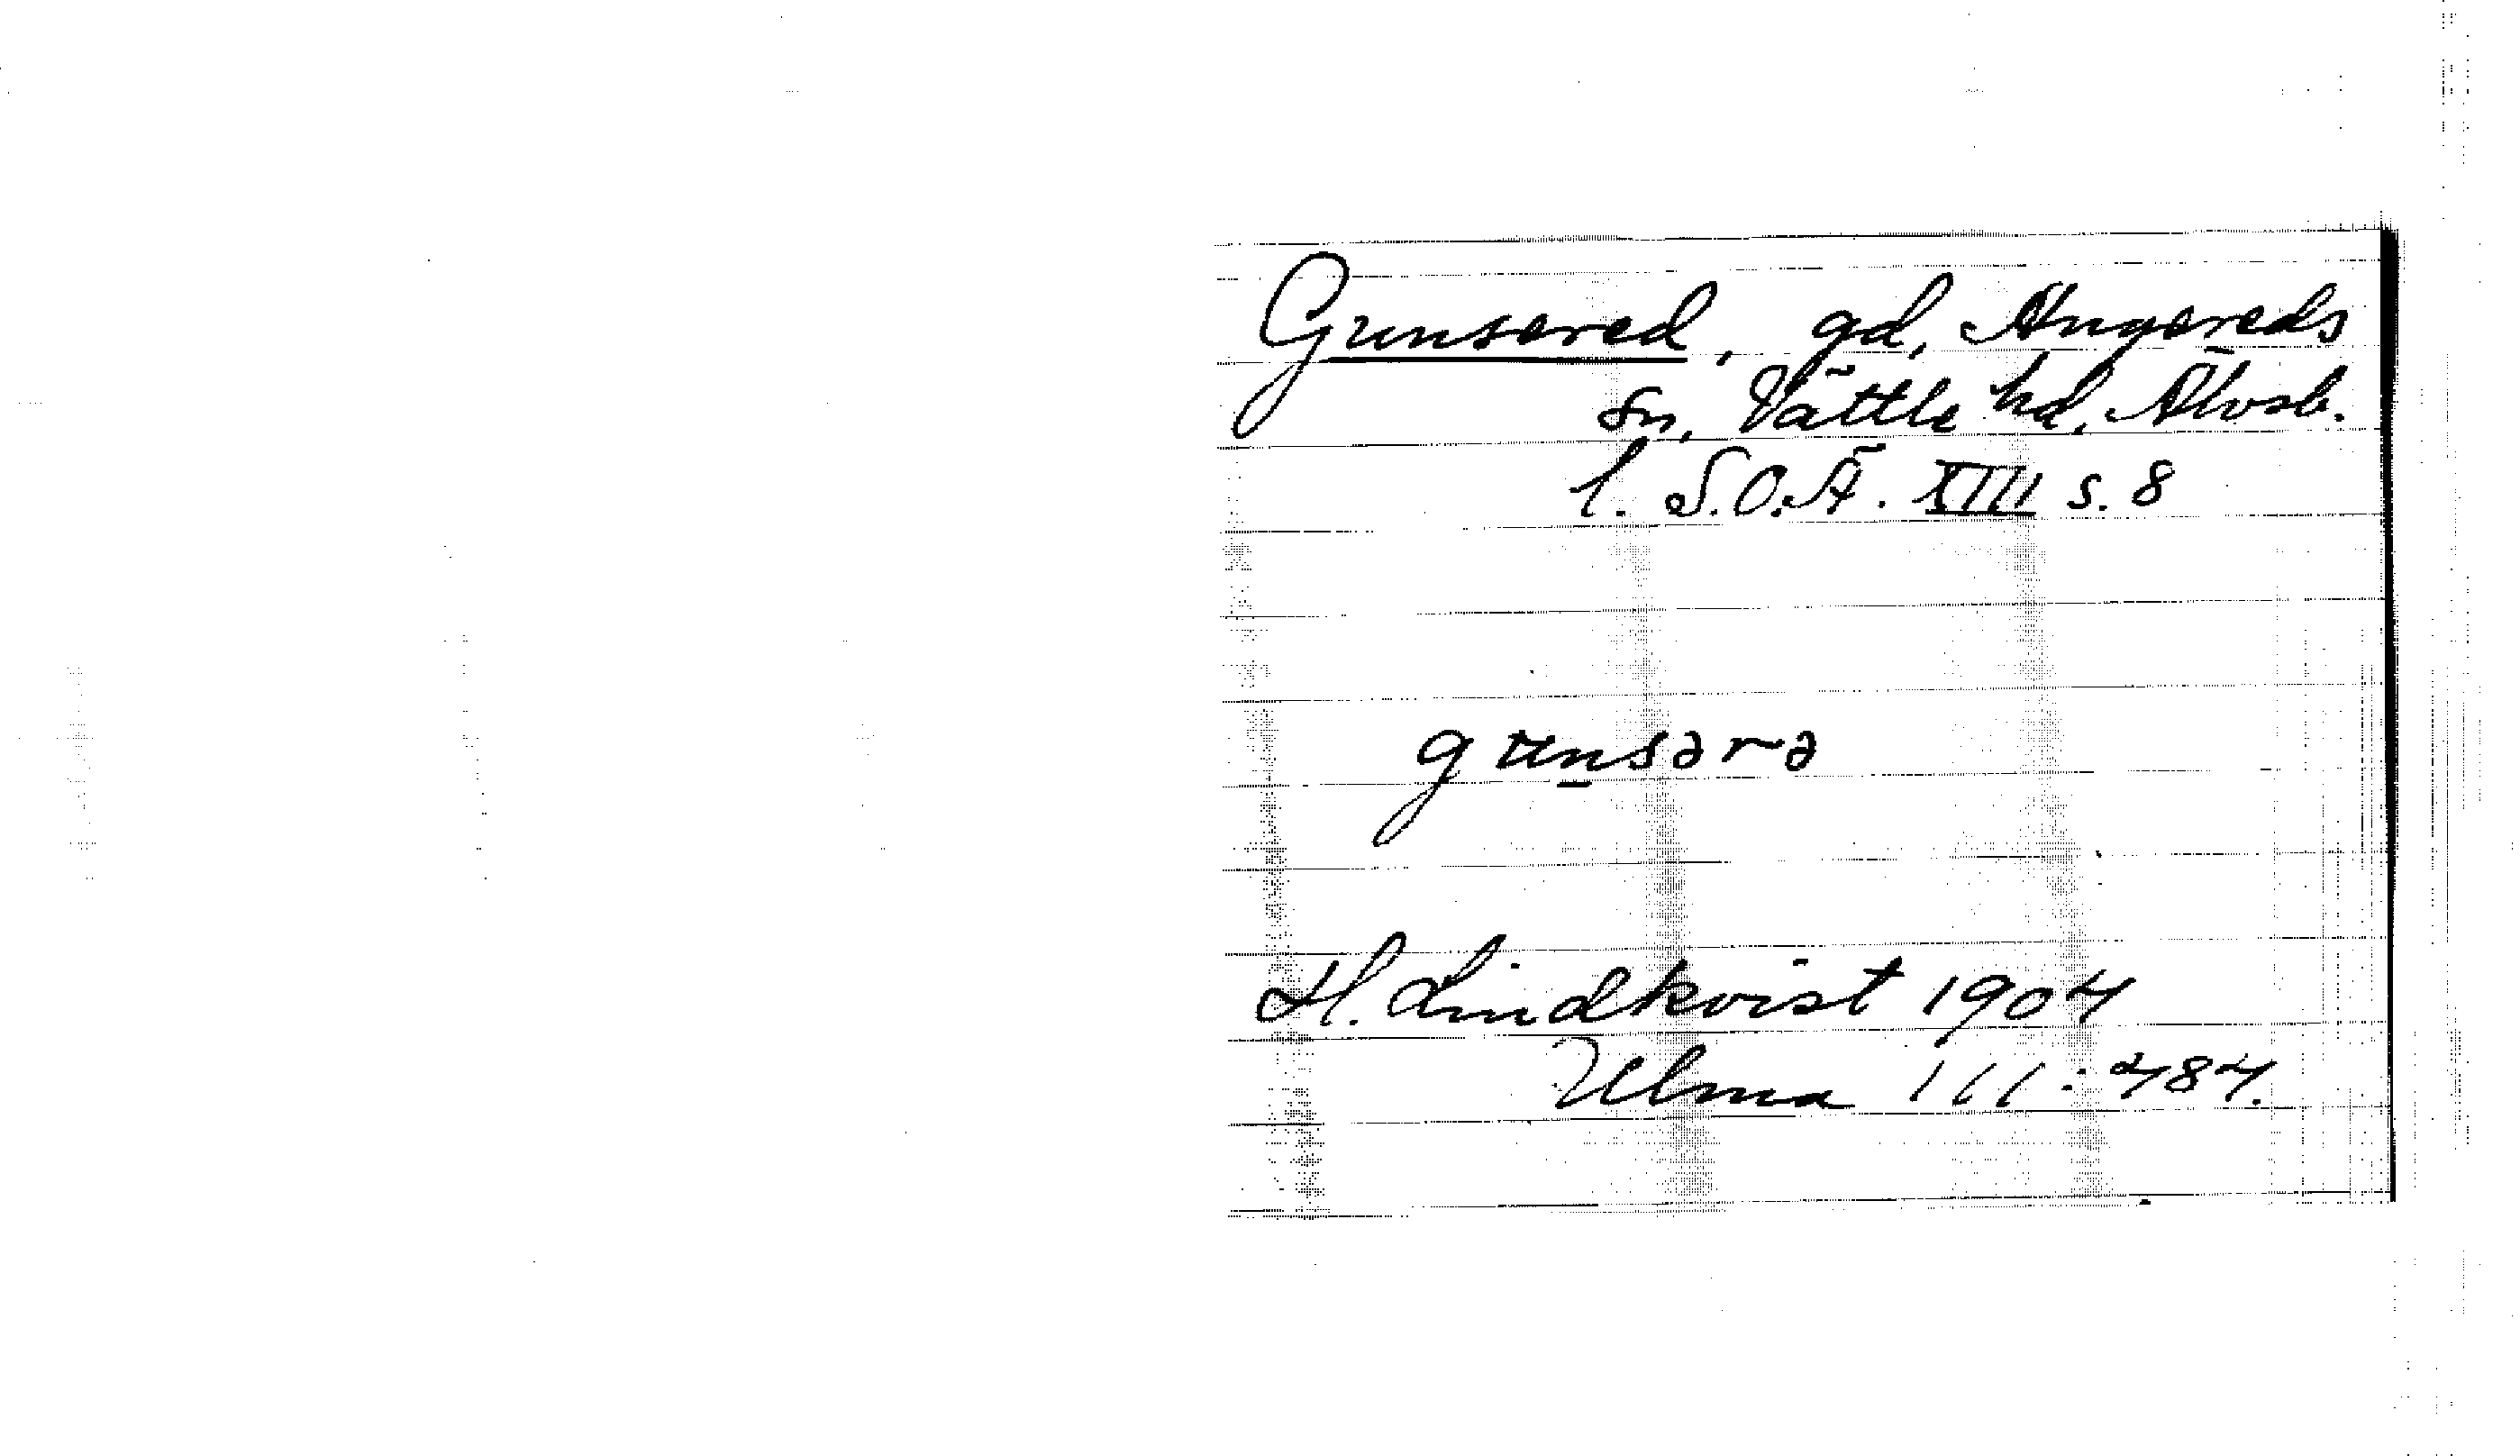 Gunsered, gd, Angereds
sn, Vättle hd, Älvsb.
l. S.O.Ä. XIII s. 8
gunsərə
H. Lindkvist 1904
Ulma 111:484.